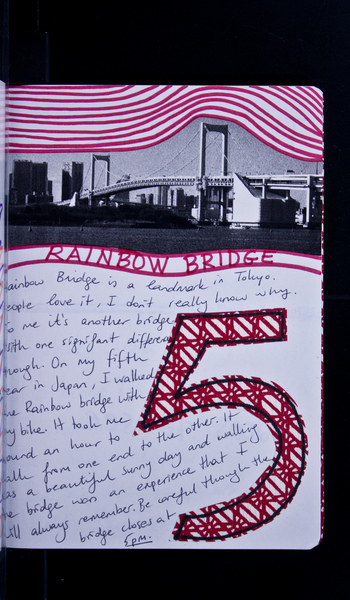 RAINBOW BRIDGE
ainbow Bridge is a landmark in Tokyo.
eople love it, I don't really know why.
o me it's another bridge
ith one signifant differen
hough. On my fifth
ear in Japan, I walked
he Rainbow bridge with
y bike. It took me
ound an hour to
alk from one end to the other. It
as a beautiful sunny day and walking
e bridge was an experience that I
ill always remember. Be careful though the
bridge closes at
5pm.
5